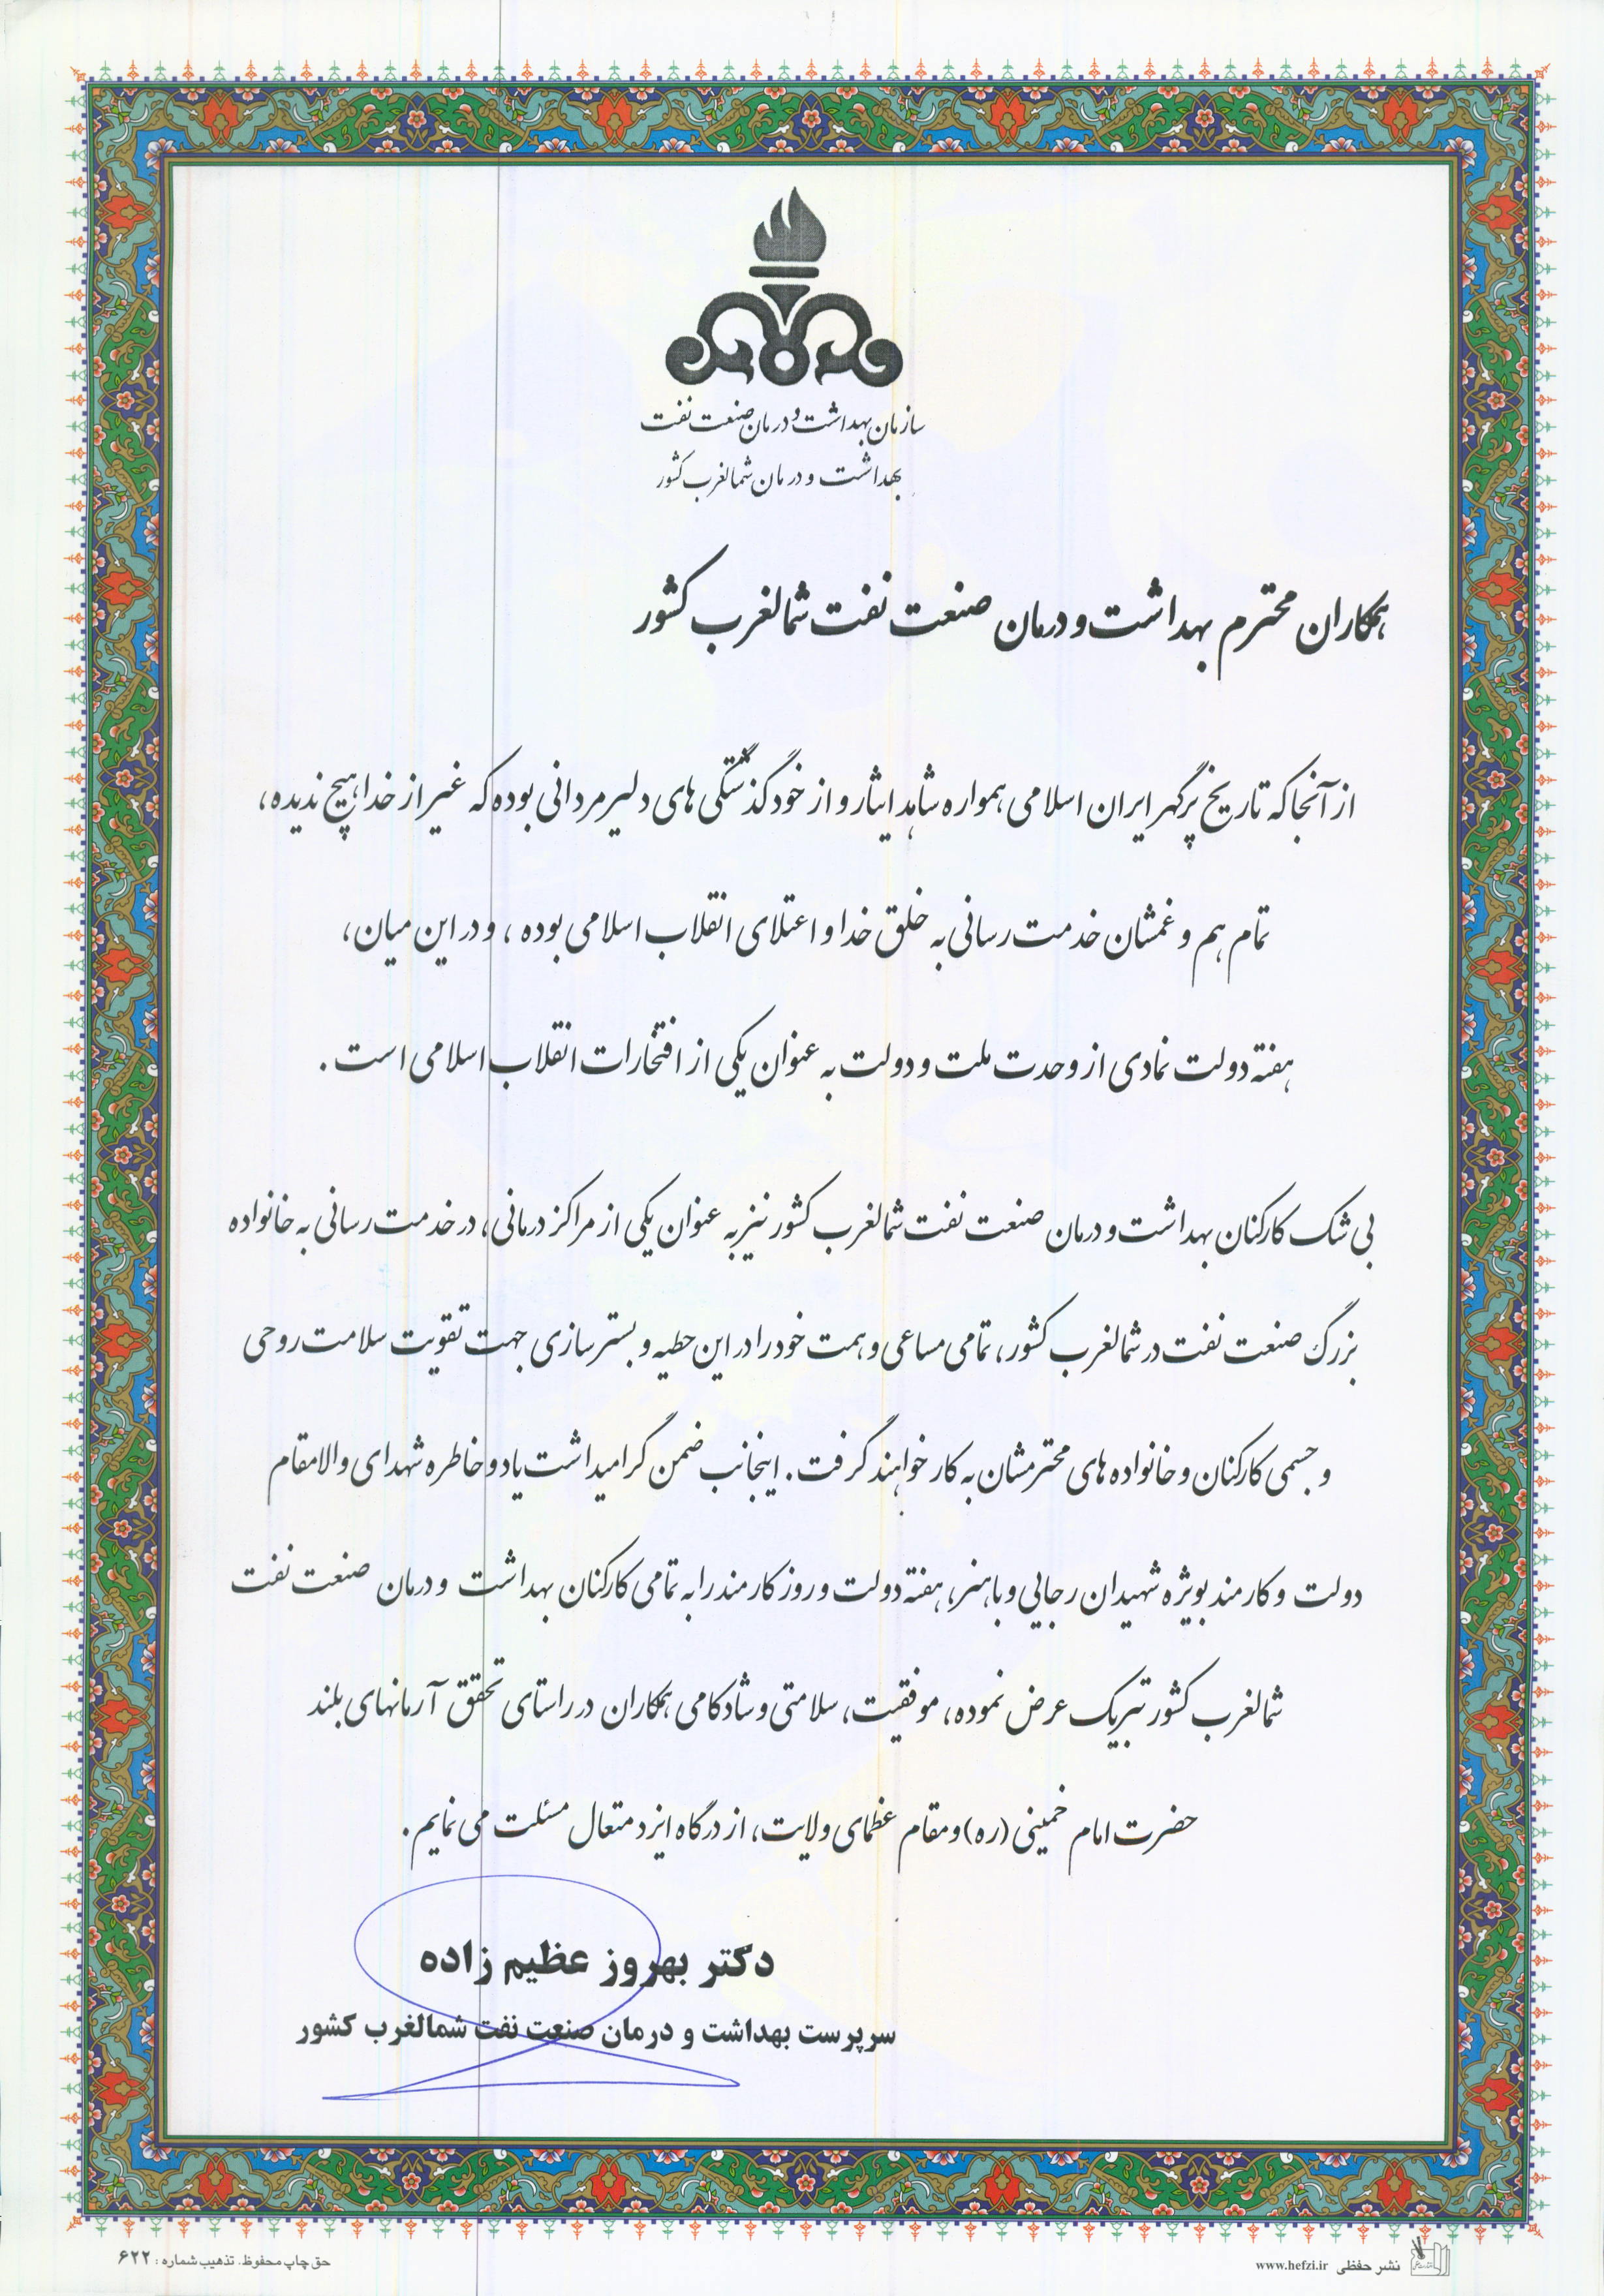 سازمان بهداشت و درمان صنعت نفت
بهداشت و درمان شمالغرب کشور
همکاران محترم بهداشت و درمان صنعت نفت شمالغرب کشور
از آنجا که تاریخ پرگهر ایران اسلامی همواره شاهد ایثار و از خود گذشتگی های دلیرمردانی بوده که غیر از خدا هیچ ندیده،
تمام هم و غمشان خدمت رسانی به خلق خدا و اعتلای انقلاب اسلامی بوده ، و در این میان،
هفته دولت نمادی از وحدت ملت و دولت به عنوان یکی از افتخارات انقلاب اسلامی است .
بی شک کارکنان بهداشت و درمان صنعت نفت شمالغرب کشور نیز به عنوان یکی از مراکز درمانی، در خدمت رسانی به خانواده
بزرگ صنعت نفت در شمالغرب کشور، تمامی مساعی و همت خود را در این حطیه و بسترسازی جهت تقویت سلامت روحی
و جسمی کارکنان و خانواده های محترمشان به کار خواهند گرفت. اینجانب ضمن گرامیداشت یاد و خاطره شهدای والامقام
دولت و کارمند بویژه شهیدان رجایی و باهنر، هفته دولت و روز کارمند را به تمامی کارکنان بهداشت و درمان صنعت نفت
شمالغرب کشور تبریک عرض نموده، موفقیت، سلامتی و شادکامی همکاران در راستای تحقق آرمانهای بلند
حضرت امام خمینی (ره) و مقام عظمای ولایت، از درگاه ایزد متعال مسئلت می نمایم.
دکتر بهروز عظیم زاده
سرپرست بهداشت و درمان صنعت نفت شمالغرب کشور
نشر حفظی www.hefzi.ir
حق چاپ محفوظ. تذهیب شماره : ۶۲۲